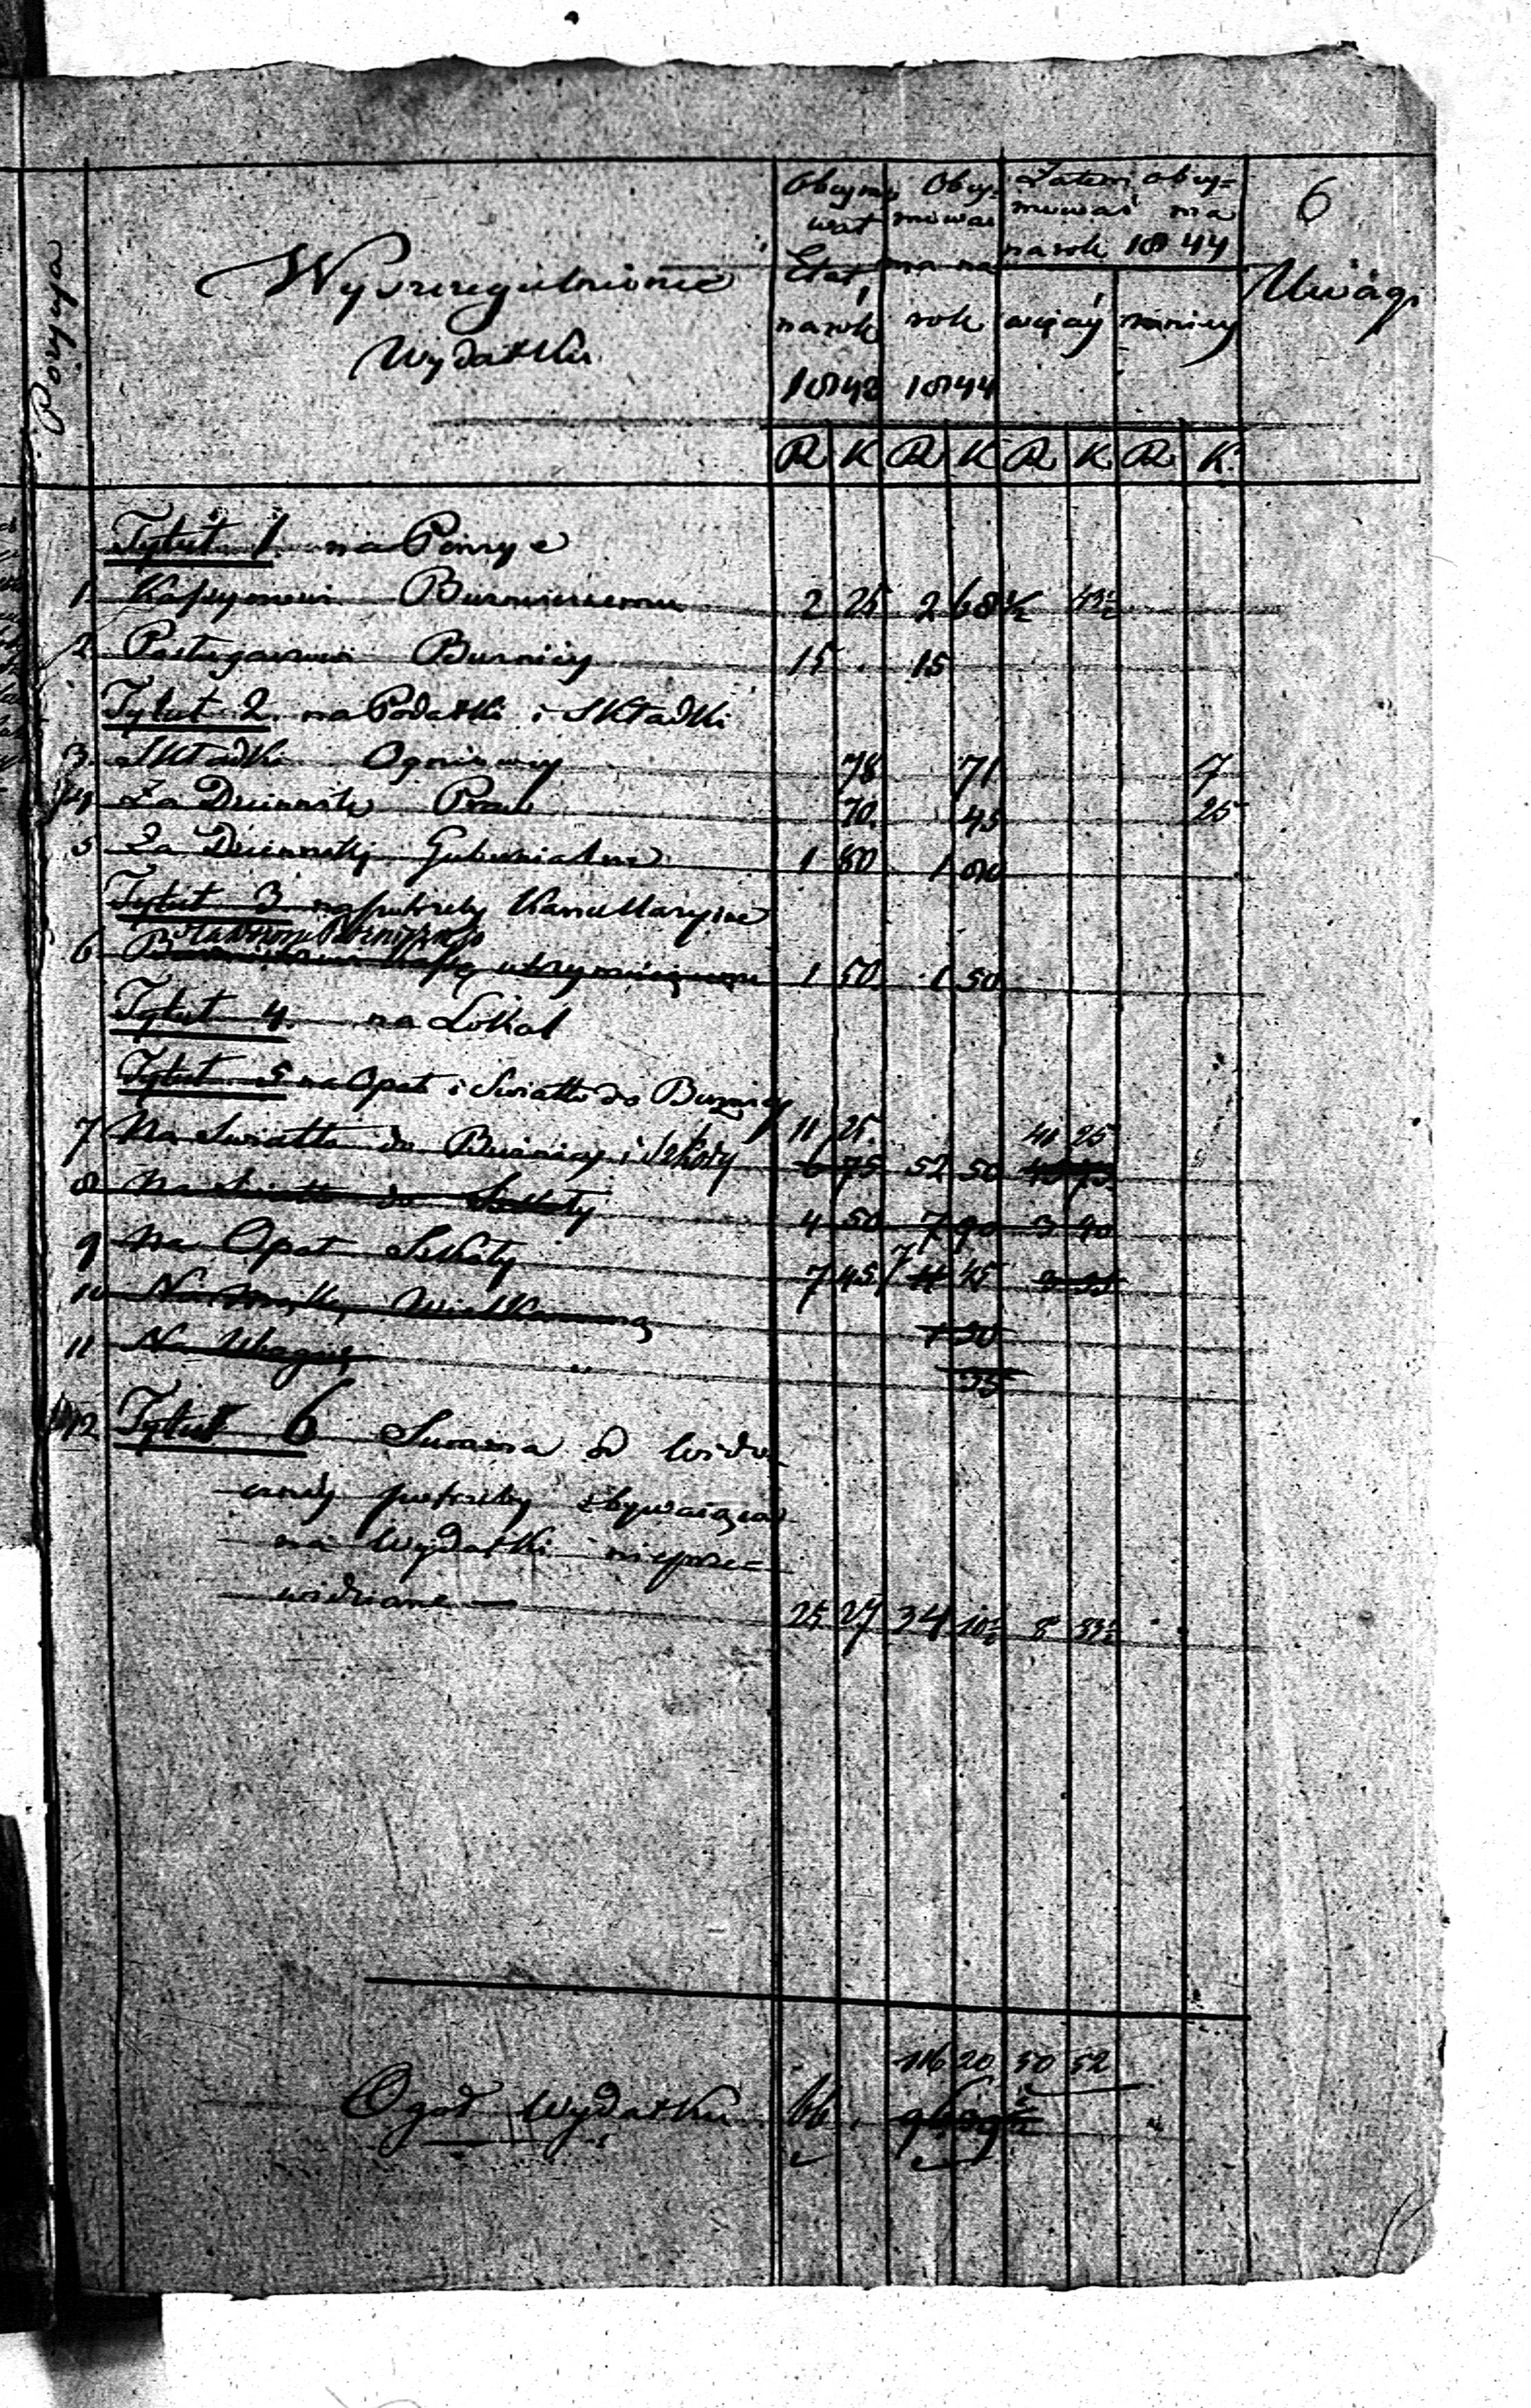 6
Pozycya
Wyszczególnienie
Wydatku
Obeymo
wał
Etat
na rok
1842
Obey=
mować
ma na
rok
1844
Zatem obey=
mować ma
na rok 1844
więcéy mniéy
Uwagi
R K R K R K R K
Tytuł 1 na Pensye
1. Kassyerowi Bużniczemu 2 25 2 68 1/2 43 1/2
2 Posługaczowi Bużnicy 15 . 15
Tytuł 2 na Podatki i Składki
3. Składki Ogniowey 78 71 7
4 Za Dziennik Praw 70. 45 25
5 Za Dziennik Gubernialny 1 80 1 80
Tytuł 3 na potrzeby Kancellaryine
6 1 50 1 50
Tytuł 4 na Lokal
Tytuł 5 na Opał i Swiatło do Bużnicy
11 25. 41 25
7 Na Swiatło do Bużnicy i Szkoły 6 75 52 50
8 Na Swiatło do Szkoły 4 50 7 90 3 40
9 Na Opał Szkoły 7 45 7 45
10 Na Wielkanoc 1 50
11 Na " 25
12 Tytuł 6 Summa od
potrzeby zbywaiąca
na Wydatki nieprze=
widziane — 25 27 34 10 1/2 8 83 1/2
116 20 50 52
Ogół Wydatku 66.